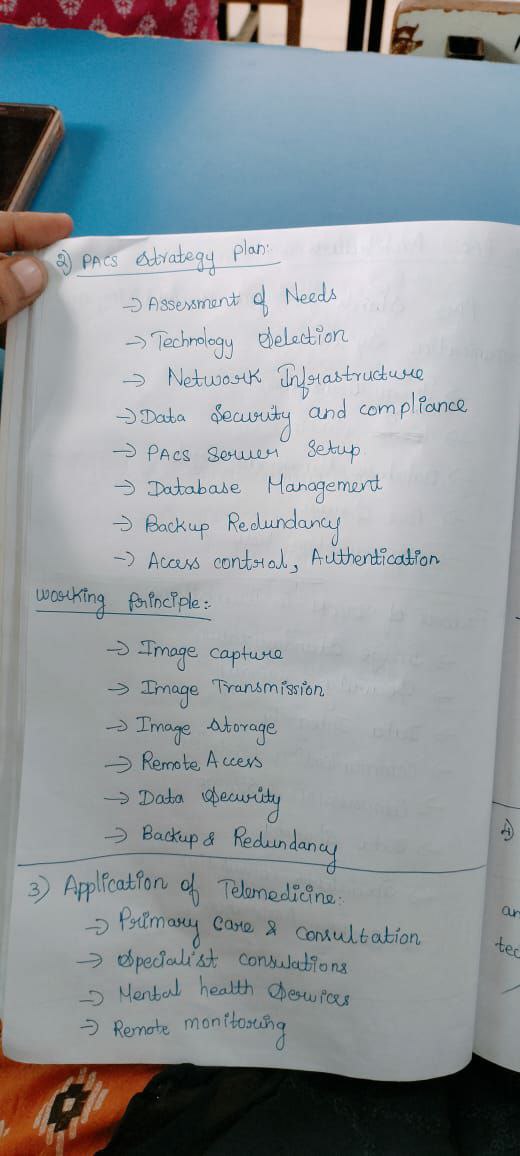 2) PACS strategy plan:
→ Assessment of Needs
→ Technology Selection
→ Network Infrastructure
→ Data Security and compliance
→ PACS Server Setup
→ Database Management
→ Backup Redundancy
→ Access control, Authentication
Working Principle:
→ Image capture
→ Image Transmission
→ Image Storage
→ Remote Access
→ Data Security
→ Backup & Redundancy
3) Application of Telemedicine:
→ Primary care & consultation
→ Specialist consulations
→ Mental health Services
→ Remote monitoring
4)
an
tec